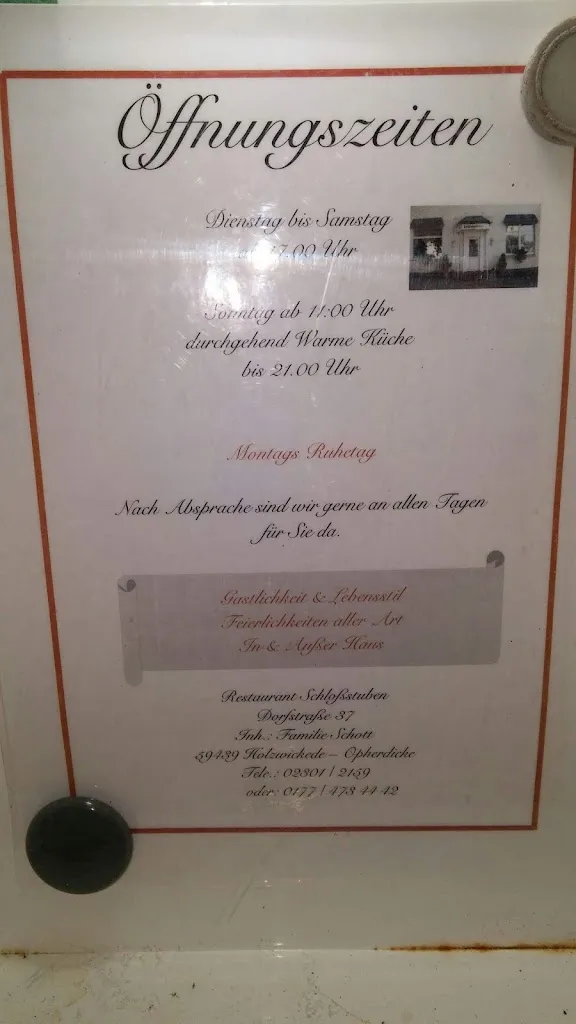 Öffnungszeiten
Dienstag bis Samstag
17.00 Uhr
Sonntag ab 11:00 Uhr
durchgehend Warme Küche
bis 21.00 Uhr
Montags Ruhetag
Nach Absprache sind wir gerne an allen Tagen
für Sie da.
Gastlichkeit & Lebensstil
Feierlichkeiten aller Art
In & Außer Haus
Restaurant Schloßstuben
Dorfstraße 37
Inh.: Familie Schott
59439 Holzwickede – Opherdicke
Tele.: 02301 / 2159
oder: 0177 / 473 44 42